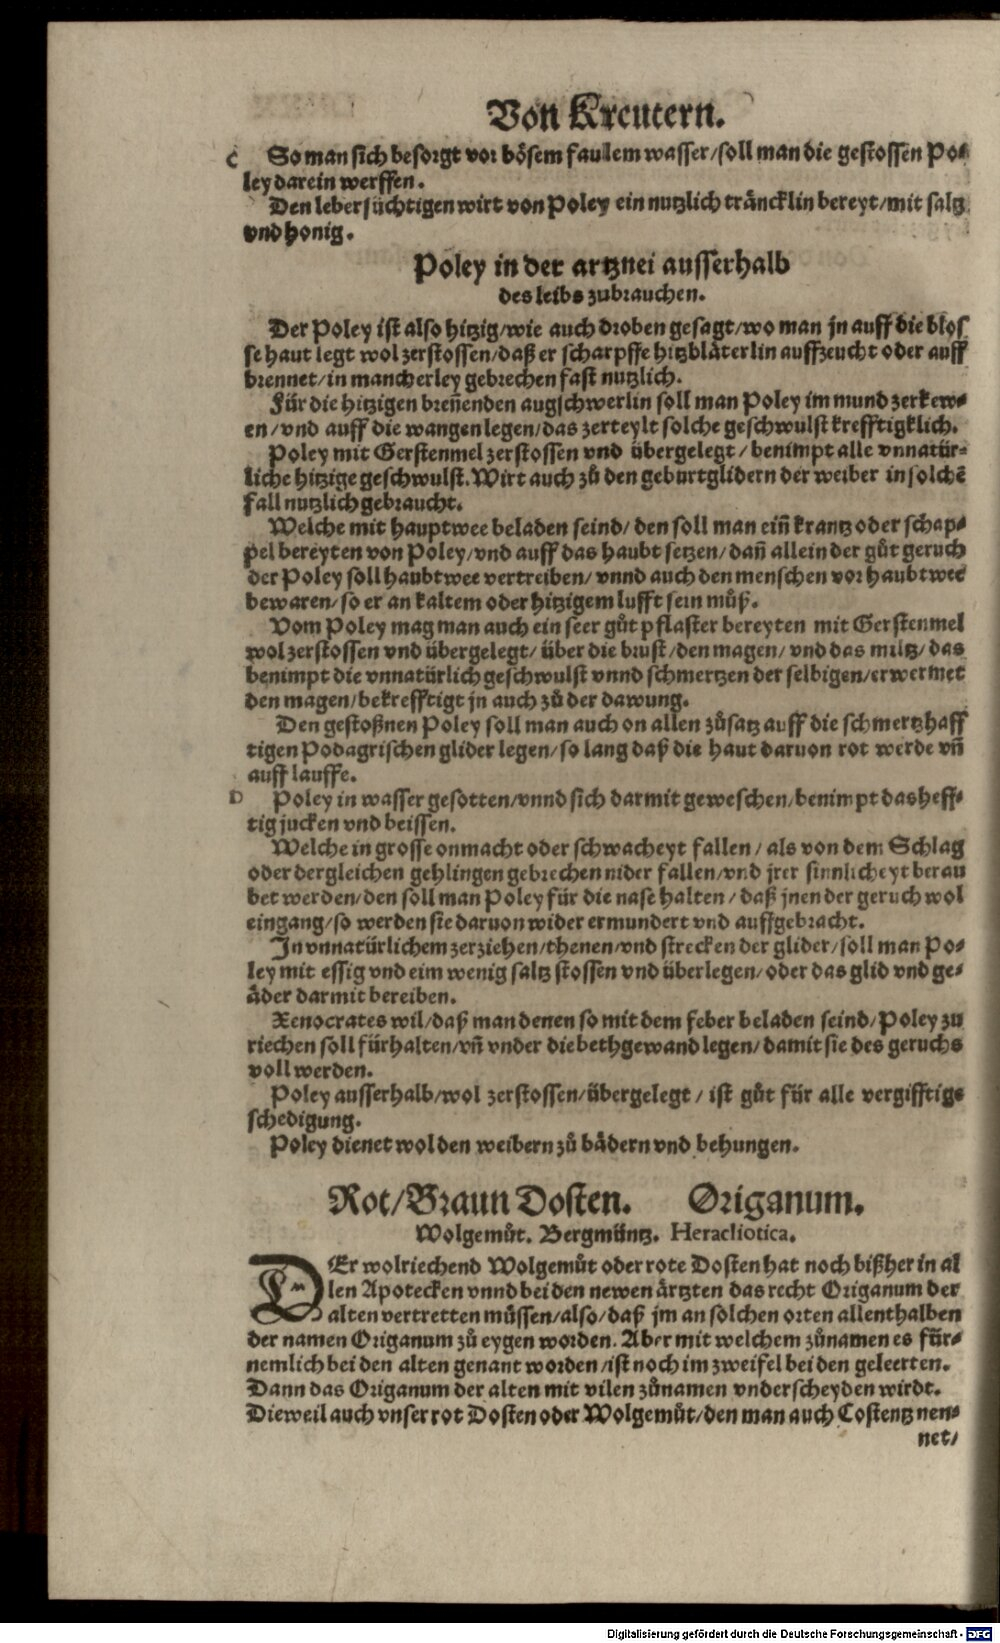 Von Kreutern.
C So man sich besorgt vor bösem faulem wasser/soll man die gestossen Po⸗
ley darein werffen.
Den lebersüchtigen wirt von Poley ein nutzlich träncklin bereyt/mit saltz
vnd honig.
Poley in der artznei ausserhalb
des leibs zubrauchen.
Der Poley ist also hitzig/wie auch droben gesagt/wo man jn auff die blos
se haut legt wol zerstossen/daß er scharpffe hitzbläterlin auffzeucht oder auff
brennet/in mancherley gebrechen fast nutzlich.
Für die hitzigen breñenden augschwerlin soll man Poley im mund zerkew⸗
en/vnd auff die wangen legen/das zerteylt solche geschwulst krefftigklich.
Poley mit Gerstenmel zerstossen vnd übergelegt/benimpt alle vnnatür⸗
liche hitzige geschwulst. Wirt auch zů den geburtglidern der weiber in solchē
fall nutzlich gebraucht.
Welche mit hauptwee beladen seind/den soll man eiñ krantz oder schap⸗
pel bereyten von Poley/vnd auff das haubt setzen/dañ allein der gůt geruch
der Poley soll haubtwee vertreiben/vnnd auch den menschen vor haubtwee
bewaren/so er an kaltem oder hitzigem lufft sein můß.
Vom Poley mag man auch ein seer gůt pflaster bereyten mit Gerstenmel
wol zerstossen vnd übergelegt/über die brust/den magen/vnd das miltz/das
benimpt die vnnatürlich geschwulst vnnd schmertzen der selbigen/erwermet
den magen/bekrefftigt jn auch zů der dawung.
Den gestoßnen Poley soll man auch on allen zůsatz auff die schmertzhaff
tigen Podagrischen glider legen/so lang daß die haut daruon rot werde vñ
auff lauffe.
D Poley in wasser gesotten/vnnd sich darmit geweschen/benimpt das heff⸗
tig jucken vnd beissen.
Welche in grosse onmacht oder schwacheyt fallen/als von dem Schlag
oder dergleichen gehlingen gebrechen nider fallen/vnd jrer sinnlicheyt berau
bet werden/den soll man Poley für die nase halten/daß jnen der geruch wol
eingang/so werden sie daruon wider ermundert vnd auffgebracht.
In vnnatürlichem zerziehen/thenen/vnd strecken der glider/soll man Po⸗
ley mit essig vnd eim wenig saltz stossen vnd überlegen/oder das glid vnd ge⸗
äder darmit bereiben.
Xenocrates wil/daß man denen so mit dem feber beladen seind/Poley zu
riechen soll fürhalten/vñ vnder die bethgewand legen/damit sie des geruchs
voll werden.
Poley ausserhalb/wol zerstossen/übergelegt/ist gůt für alle vergifftige
schedigung.
Poley dienet wol den weibern zů bädern vnd behungen.
Rot/Braun Dosten. Origanum.
Wolgemůt. Bergmüntz. Heracliotica.
DEr wolriechend Wolgemůt oder rote Dosten hat noch bißher in al
len Apotecken vnnd bei den newen ärtzten das recht Origanum der
alten vertretten müssen/also/daß jm an solchen orten allenthalben
der namen Origanum zů eygen worden. Aber mit welchem zůnamen es für⸗
nemlich bei den alten genant worden/ist noch im zweifel bei den geleerten.
Dann das Origanum der alten mit vilen zůnamen vnderscheyden wirdt.
Dieweil auch vnser rot Dosten oder Wolgemůt/den man auch Costentz nen⸗
net/
Digitalisierung gefördert durch die Deutsche Forschungsgemeinschaft - DFG